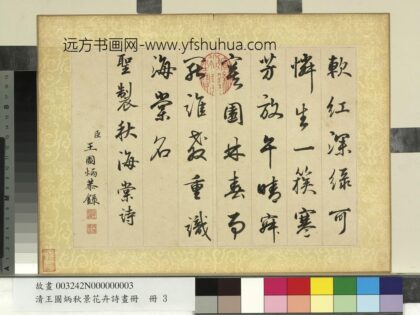 远方书画网-www.yfshuhua.com
軟紅深綠可
憐生一簇寒
芳放午晴寂
寞園林春雨
誰教重識
海棠名
聖製秋海棠詩
臣王圖炳恭錄
故畫 003242N000000003
清王圖炳秋景花卉詩畫冊 冊 3